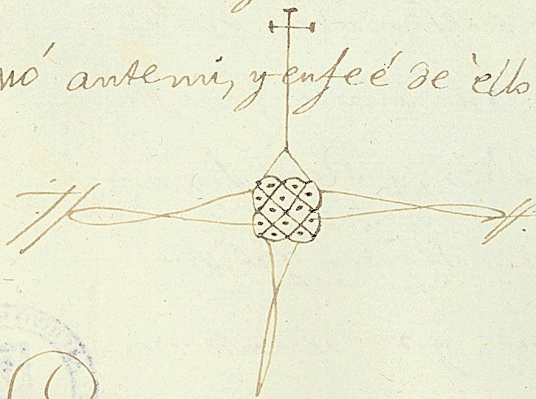 antemi, y enfeé de èllo